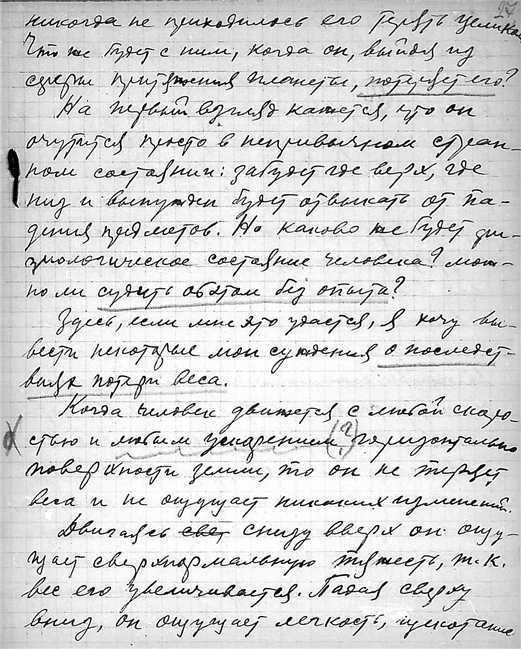 27
никогда не приходилось его терять целиком
Что же будет с ним, когда он, выйдя из
сферы притяжения планеты, потеряет его?
На первый взгляд кажется, что он
очутится просто в непривычном стран-
ном состоянии: забудет где верх, где
низ и вынужден будет отвыкать от па-
дения предметов. Но каково же будет фи-
зиологическое состояние человека? Мож-
но ли судить об этом без опыта?
Здесь, если мне это удастся, я хочу вы-
вести некоторые мои суждения о последст-
виях потери веса.
Когда человек движется с любой скоро-
стью и любым ускорением (?) горизонтально
поверхности земли, то он не теряет
веса и не ощущает никаких изменений.
Двигаясь свет снизу вверх он ощу-
щает сверхнормальную тяжесть, т.к.
вес его увеличивается. Падая сверху
вниз, он ощущает легкость, щекотание